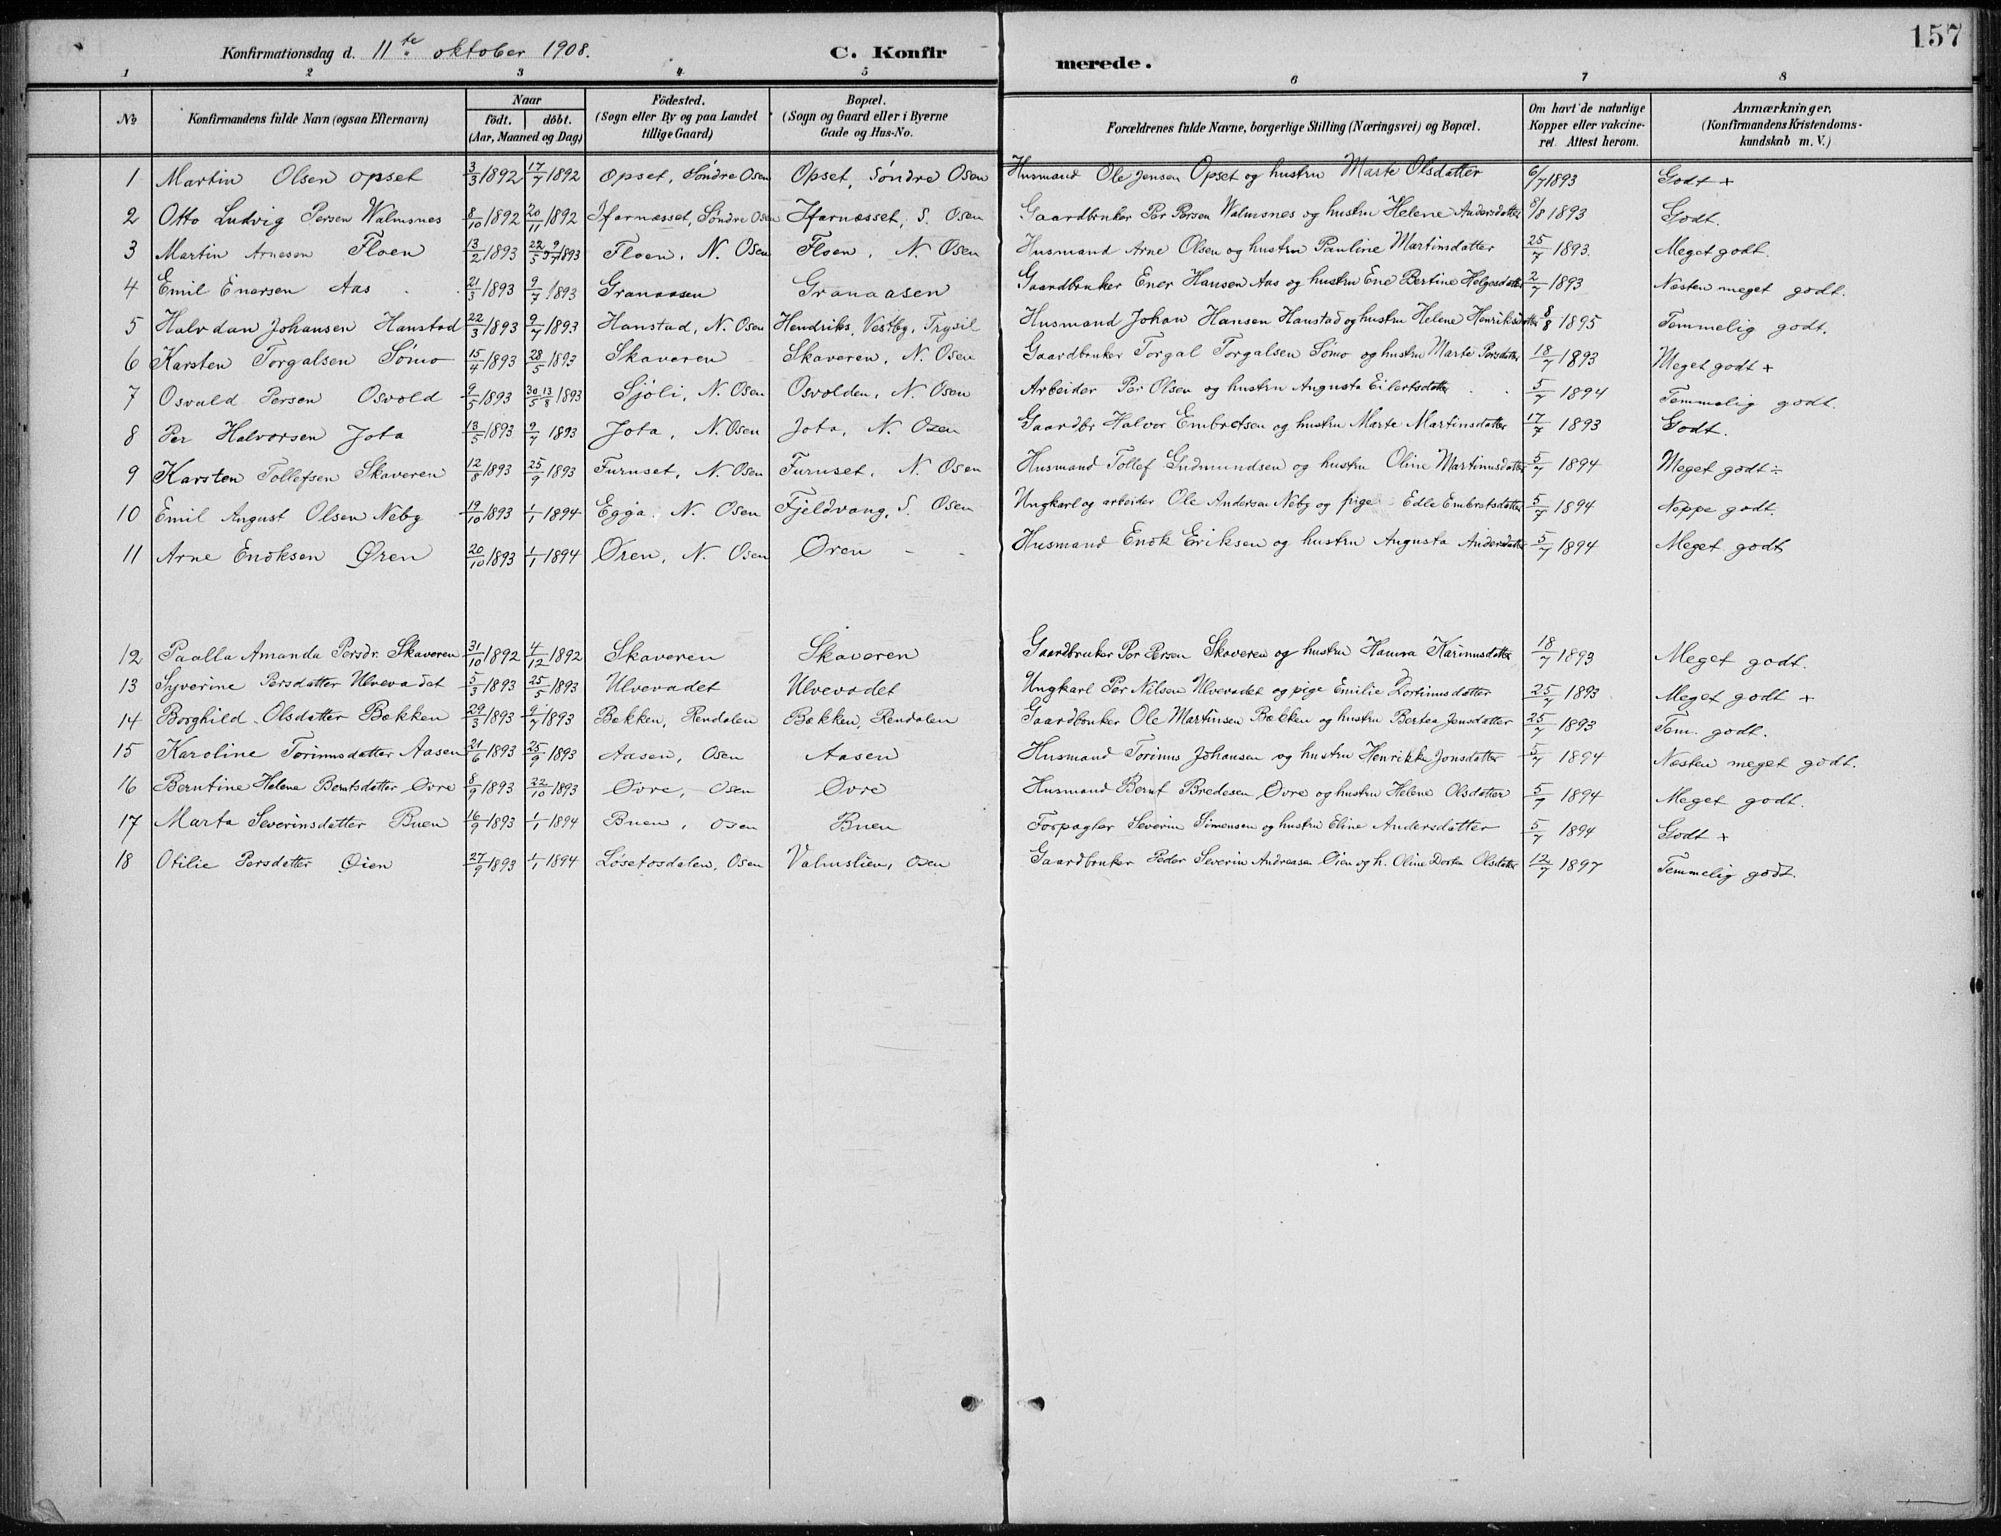 157
Konfirmationsdag d. 11te oktober 1908. C. Konfirmerede.
1 2 3 4 5 6 7 8
No. Konfirmandens fulde Navn (ogsaa Efternavn) Naar födt. döbt. (Aar, Maaned og Dag) Födested. (Sogn eller By og paa Landet tillige Gaard) Bopæl. (Sogn og Gaard eller i Byerne Gade og Hus-No. Forældrenes fulde Navne, borgerlige Stilling (Næringsvei) og Bopæl. Om havt de naturlige Kopper eller vakcineret. Attest herom. Anmærkninger. (Konfirmandens Kristendomskundskab m. V.)
1 Martin Olsen Opset 3/3 1892 17/7 1892 Opset, Söndre Osen Opset, Söndre Osen Husmand Ole Jensen Opset og hustru Marte Olsdatter 6/7 1893 Godt +
2 Otto Ludvig Persen Valmsnes 8/10 1892 20/11 1892 Ifarnæsset, Söndre Osen Ifarnæsset, S. Osen Gaardbruker Per Persen Valmsnes og hustru Helene Andersdatter 8/8 1893 Godt.
3 Martin Arnesen Floen 13/2 1893 22/5 9/7 1893 Floen, N. Osen Floen, N. Osen Husmand Arne Olsen og hustru Pauline Martinsdatter 25/7 1893. Meget godt.
4 Emil Enersen Aas 21/3 1893 9/7 1893 Granaasen Granaasen Gaardbruker Ener Hansen Aas og hustru Ene Bertine Helgesdatter 2/7 1893 Næsten meget godt.
5 Halvdan Johansen Hanstad 22/3 1893 9/7 1893 Hanstad, N. Osen Hendriks, Vestby, Trysil Husmand Johan Hansen Hanstad og hustru Helene Henriksdatter 8/8 1895 Temmelig godt.
6 Karsten Torgalsen Sömo 15/4 1893 28/5 1893 Skaveren Skaveren, N. Osen Gaardbruker Torgal Torgalsen Sömo og hustru Marte Persdatter 18/7 1893 Meget godt +
7 Osvald Persen Osvold 9/5 1893 30/5 13/8 1893 Sjöli, N. Osen Osvolden, N. Osen Arbeider Per Olsen og hustru Augusta Eilertsdatter 5/7 1894 Temmelig godt.
8 Per Halvorsen Jota 13/5 1893 9/7 1893 Jota, N. Osen Jota, N. Osen Gaardbr Halvor Embretsen og hustru Marte Martinsdatter 17/7 1893 Godt.
9 Karsten Tollefsen Skaveren 12/8 1893 25/9 1893 Furuset, N. Osen Furuset, N. Osen Husmand Tollef Gudmundsen og hustru Oline Martinusdatter 5/7 1894 Meget godt ÷
10 Emil August Olsen Neby 19/10 1893 1/1 1894 Egga, N. Osen Fjeldvang, S. Osen Ungkarl og arbeider Ole Andersen Neby og pige Edle Embretsdatter 5/7 1894 Neppe godt.
11 Arne Enoksen Øren 20/10 1893 1/1 1894 Øren, N. Osen Øren - - Husmand Enok Eriksen og hustru Augusta Andersdatter 5/7 1894 Meget godt
12 Paalla Amanda Persdr. Skaveren 31/10 1892 4/12 1892 Skaveren Skaveren Gaardbruker Per Persen Skaveren og hustru Hanna Karinusdatter 18/7 1893 Meget godt.
13 Syverine Persdatter Ulvevadet 5/3 1893 25/5 1893 Ulvevadet Ulvevadet Ungkarl Per Nilsen Ulvevadet og pige Emilie Tortinusdatter 25/7 1893 Meget godt +
14 Borghild Olsdatter Bækken 29/3 1893 9/7 1893 Bækken, Rendalen Bækken, Rendalen Gaardbruker Ole Martinsen Bækken og hustru Bertea Jonsdatter 25/7 1893 Tem. godt.
15 Karoline Torinusdatter Aasen 21/6 1893 25/9 1893 Aasen, Osen Aasen Husmand Torinus Johansen og hustru Henrikke Jonsdatter 5/7 1894 Næsten meget godt.
16 Berntine Helene Berntsdatter Øvre 8/9 1893 22/10 1893 Øvre, Osen Øvre Husmand Bernt Bredesen Øvre og hustru Helene Olsdatter 5/7 1894 Meget godt.
17 Marta Severinsdatter Buen 16/9 1893 1/1 1894 Buen, Osen Buen Forpagter Severin Simensen og hustru Eline Andersdatter 5/7 1894 Godt +
18 Otilie Persdatter Øien 27/9 1893 1/1 1894 Lösetosdalen, Osen Valmslien, Osen Gaardbruker Peder Severin Andreasen Øien og h. Oline Dortea Olsdatter 12/7 1897 Temmelig godt.